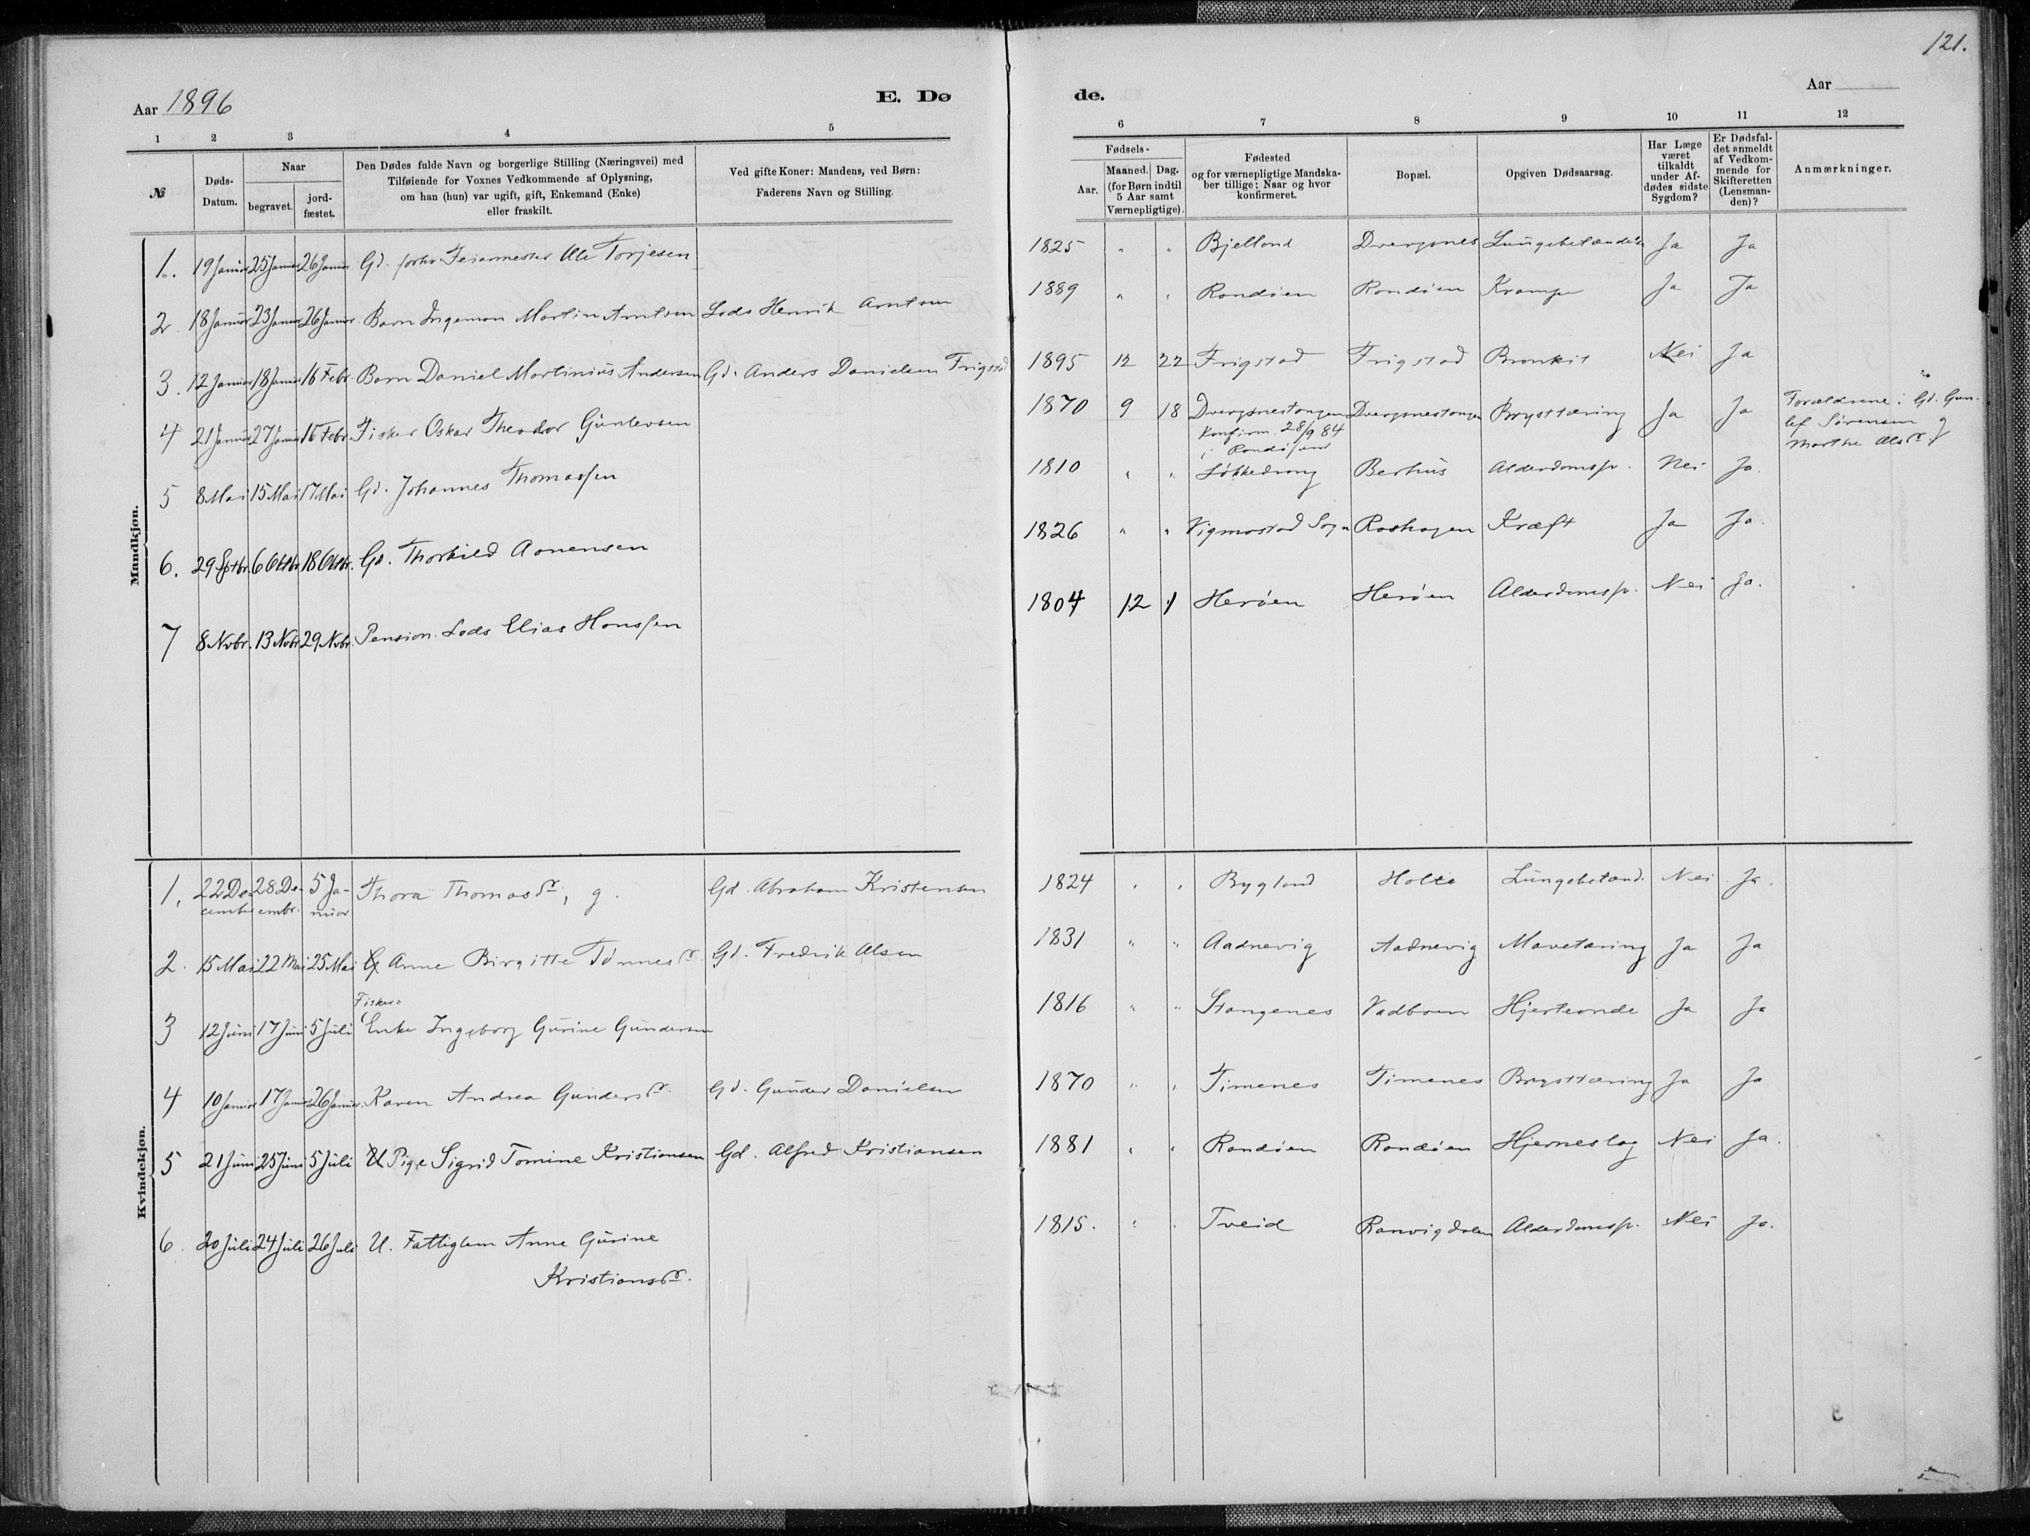 121.
Aar 1896
E. Dø
de.
Aar
1 2 3 4 5
6 7 8 9 10 11 12
№
Døds-Datum.
Naar
begravet.
jord-fæstet.
Den Dødes fulde Navn og borgerlige Stilling (Næringsvei) med
Tilføiende for Voxnes Vedkommende af Oplysning,
om han (hun) var ugift, gift, Enkemand (Enke)
eller fraskilt.
Ved gifte Koner: Mandens, ved Børn:
Faderens Navn og Stilling.
Fødsels-
Aar.
Maaned. Dag.
(for Børn indtil
5 Aar samt
Værnepligtige).
Fødested
og for værnepligtige Mandska-
ber tillige: Naar og hvor
konfirmeret.
Bopæl.
Opgiven Dødsaarsag.
Har Læge
været
tilkaldt
under Af-
dødes sidste
Sygdom?
Er Dødsfal-
det anmeldt
af Vedkom-
mende for
Skifteretten
(Lensman-
den)?
Anmærkninger.
Mandkjøn.
1. 19 Januar 25 Januar 26 Januar Gd. forhv. Feiermester Ole Torjesen 1825 " " Bjelland Dvergsnes Ja Ja
2. 18 Januar 23 Januar 26 Januar Barn Ingeman Martin Arntsen Lods Henrik Arntsen 1889 " " Randøen Randøen Krampe Ja Ja
3. 12 Januar 18 Januar 16 Febr. Barn Daniel Martinius Andersen Gd. Anders Danielsen Frigstad 1895 12 22 Frigstad Frigstad Bronkit Nei Ja
4 21 Januar 27 Januar 16 Febr. Fisker Oskar Theodor Gunlevsen 1870 9 18 Dvergsnestangen Dvergsnestangen Brysttæring Ja Ja Forældrene: Gd. Gun-
Konfirm. 28/9 84 lef Sørensen og
i Randøsund Marthe Olsdr.
5 8 Mai 15 Mai 17 Mai Gd. Johannes Thomassen 1810 " " Berhus Alderdomssv. Nei Ja.
6. 29 Septbr. 6 Oktbr. 18 Oktbr. Gd. Thorkild Aanensen 1826 " " Vigmostad Sogn Roshagen Kræft Ja Ja.
7 8 Novbr. 13 Novbr. 29 Novbr. Pension. Lods Elias Hanssen 1804 12 1 Herøen Herøen Alderdomssv. Nei Ja.
Kvindekjøn.
1. 22 De-cember 28 De-cembr. 5 Ja-nuar Thora Thomasdr, g. Gd. Abraham Kristensen 1824 " " Bygland Holte Lungebetænd. Nei Ja.
2. 15 Mai 22 Mai 25 Mai G Anne Birgitte Tønnesdr. Gd. Fredrik Olsen 1831 " " Aadnevig Aadnevig Mavetæring Ja Ja
Fisker-
3 12 Juni 17 Juni 5 Juli Enke Ingeborg Gurine Gundersen 1816 " " Stangenes Vadboen Hjerteonde Ja Ja
4 10 Januar 17 Januar 26 Januar. Karen Andrea Gundersdr. Gd. Gunder Danielsen 1870 " " Timenes Timenes Brysttæring Ja Ja
5 21 Juni 25 Juni 5 Juli U Pige Sigrid Tomine Kristiansen Gd. Alfred Kristiansen 1881 " " Randøen Randøen Hjerneslag Nei Ja.
6. 20 Juli 24 Juli 26 Juli U. Fattiglem Anne Gurine 1815. " " Tveid Ranvigdalen Alderdomssv. Nei Ja.
Kristiansdr.